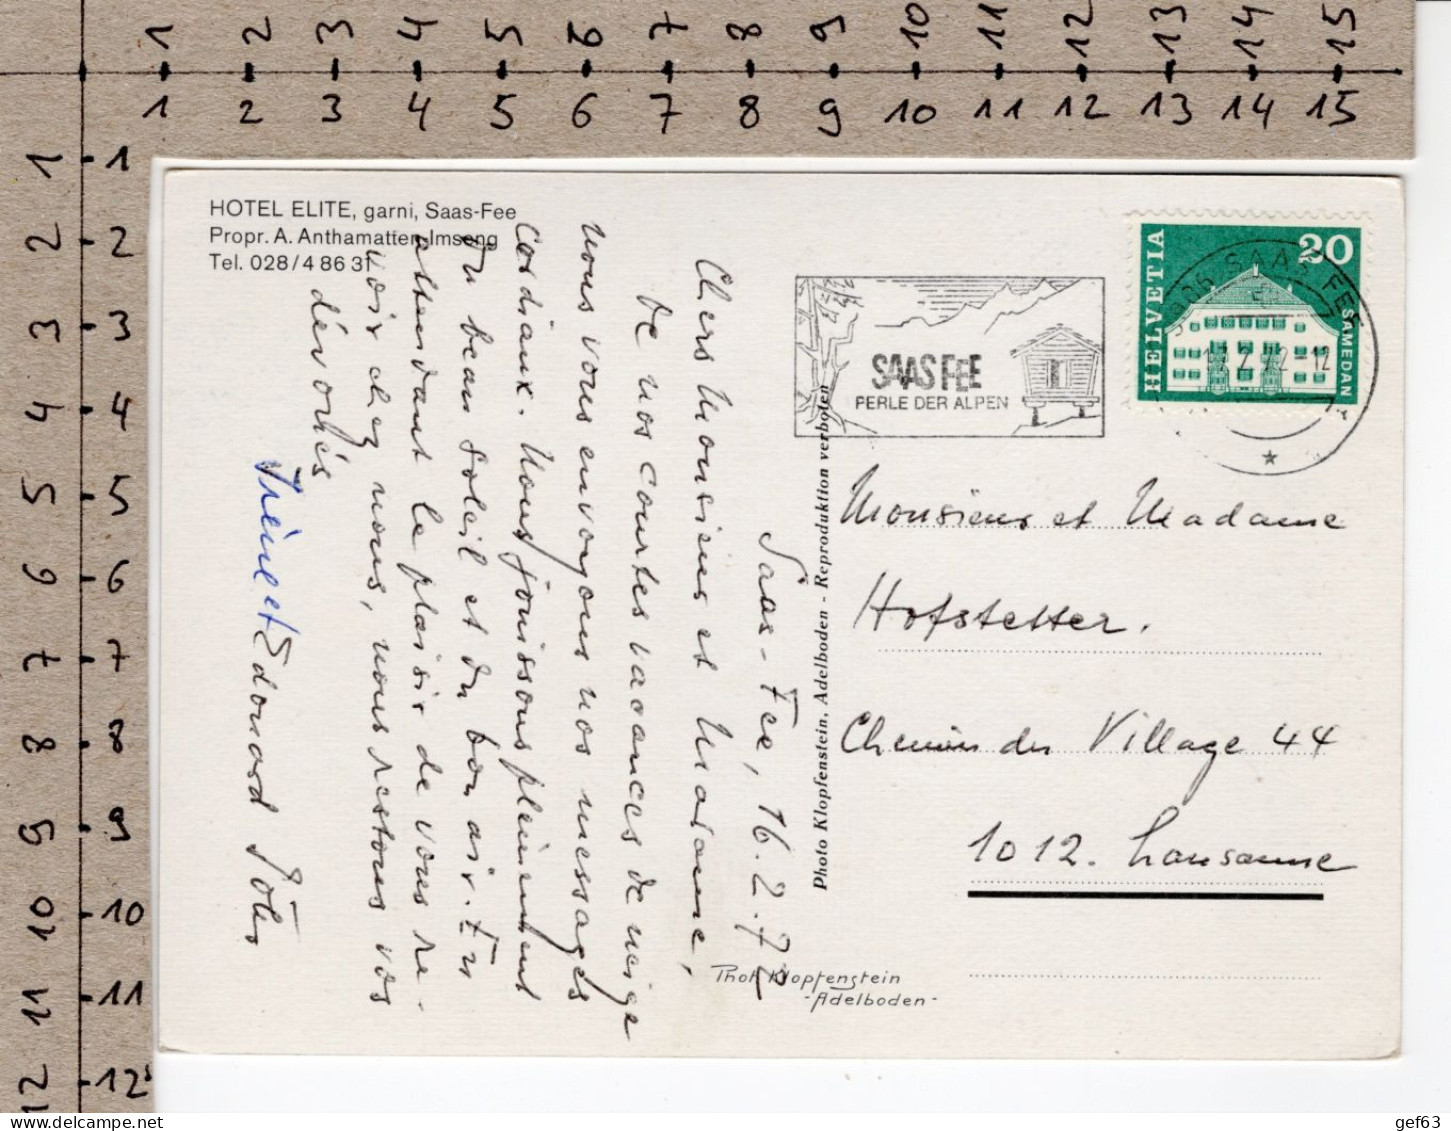 1 2 3 4 5 6 7 8 9 10 11 12 13 14 15
1 2 3 4 5 6 7 8 9 10 11 12 13 14 15
1 1
2 2
3 3
4 4
5 5
6 6
7 7
8 8
9 9
10 10
11 11
12 12
HOTEL ELITE, garni, Saas-Fee
Propr. A. Anthamatten-Imseng
Tel. 028/4 86 31
Saas-Fee, 16.2.72
Chers Monsieur et Madame,
De nos courtes vacances de neige
nous vous envoyons nos messages
cordiaux. Nous jouissons pleinement
du beau soleil et du bon air. En
attendant le plaisir de vous re-
voir chez nous, nous restons vos
dévoués
et Edouard
Photo Klopfenstein, Adelboden - Reproduktion verboten
Phot. Klopfenstein
- Adelboden -
SAAS FEE
PERLE DER ALPEN
HELVETIA
20
SAMEDAN
3906 SAAS FEE
17.2.72-12
Monsieur et Madame
Hofstetter.
Chemin du Village 44
1012. Lausanne
delcampe.net
gef63